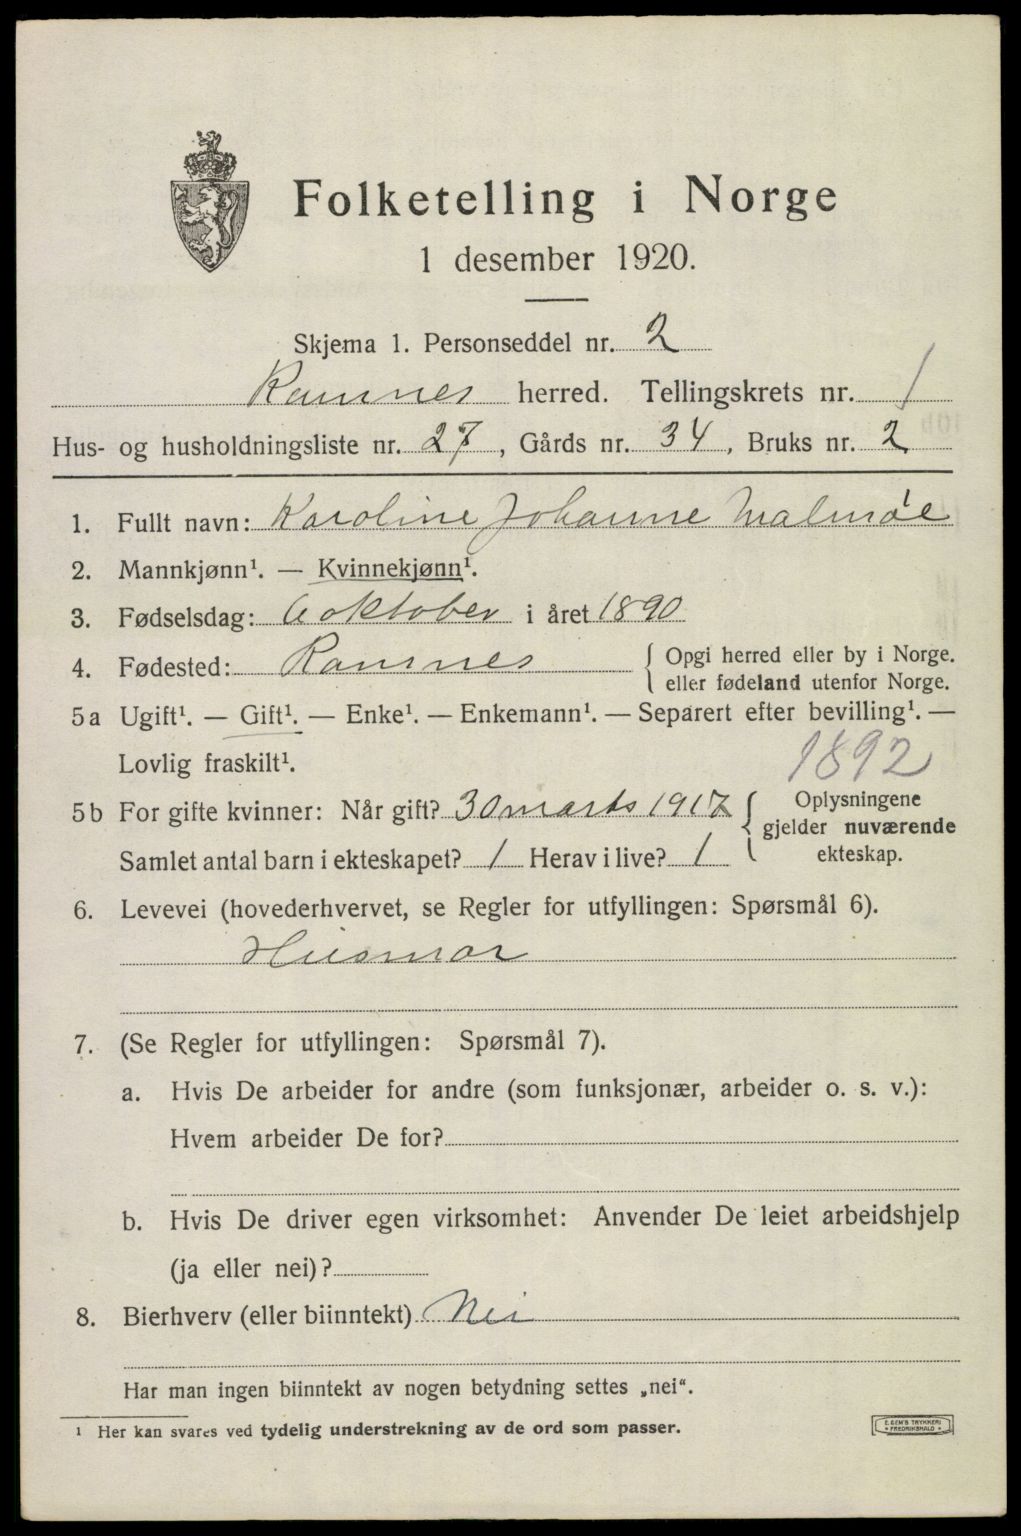 Folketelling i Norge
1 desember 1920.
Skjema 1. Personseddel nr. 2
Ramnes herred. Tellingskrets nr. 1
Hus- og husholdningsliste nr. 27, Gårds nr. 34, Bruks nr. 2
1. Fullt navn: Karoline Johanne Malmøe
2. Mannkjønn¹. — Kvinnekjønn¹.
3. Fødselsdag: 6 oktober i året 1890
4. Fødested: Ramnes { Opgi herred eller by i Norge.
eller fødeland utenfor Norge.
5a Ugift¹. — Gift¹. — Enke¹. — Enkemann¹. — Separert efter bevilling¹. —
Lovlig fraskilt¹.
1892
5b For gifte kvinner: Når gift? 30 marts 1917 { Oplysningene
gjelder nuværende
Samlet antal barn i ekteskapet? 1 Herav i live? 1 ekteskap.
6. Levevei (hovederhvervet, se Regler for utfyllingen: Spørsmål 6).
Husmor
7. (Se Regler for utfyllingen: Spørsmål 7).
a. Hvis De arbeider for andre (som funksjonær, arbeider o. s. v.):
Hvem arbeider De for?
b. Hvis De driver egen virksomhet: Anvender De leiet arbeidshjelp
(ja eller nei)?
8. Bierhverv (eller biinntekt) Nei
Har man ingen biinntekt av nogen betydning settes „nei“.
¹ Her kan svares ved tydelig understrekning av de ord som passer.
E. GEM'S TRYKKERI
• FREDRIKSHALD •